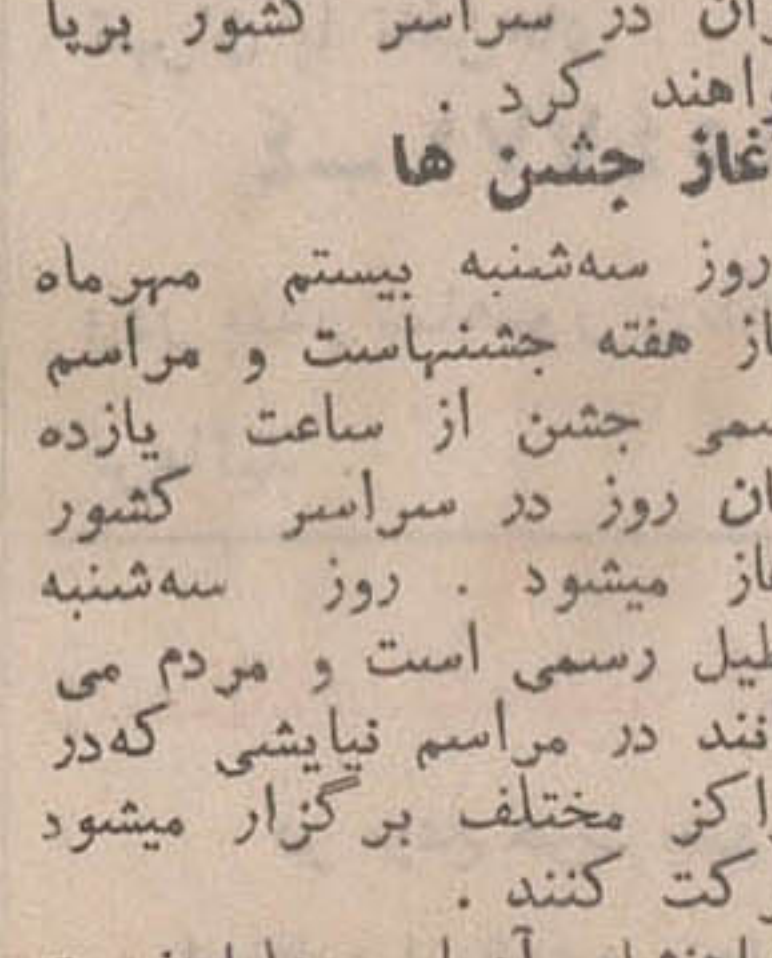 در سراسر کشور برپا
کرد .
جشن ها
روز سه‌شنبه بیستم مهرماه
هفته جشنهاست و مراسم
جشن از ساعت یازده
روز در سراسر کشور
میشود . روز سه‌شنبه
رسمی است و مردم می
در مراسم نیایشی که‌در
مختلف برگزار میشود
کنند .